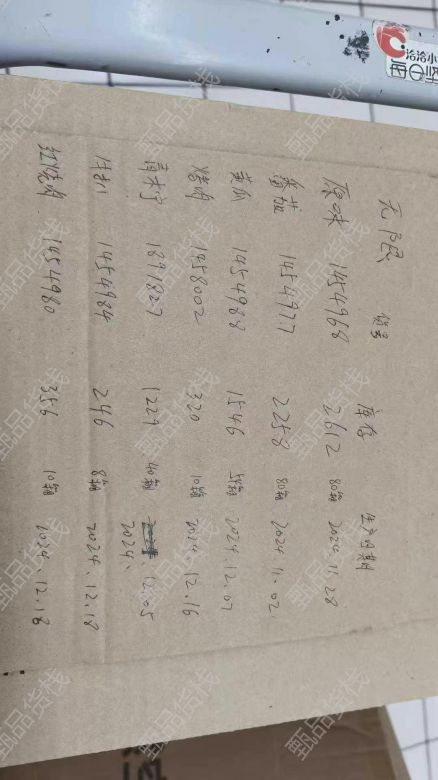 无限 储号 库存 生产日期
原味 1454968 2612 80箱 2024.11.28
番茄 1454977 2258 80箱 2024.11.02
黄瓜 1454988 1546 2024.12.07
烧烤 1458002 320 10箱 2024.12.16
青柠 1891827 1229 40箱 2024.12.05
1454984 246 8箱 2024.12.18
红烧肉 1454980 356 10箱 2024.12.18
洽洽小
甄品货栈